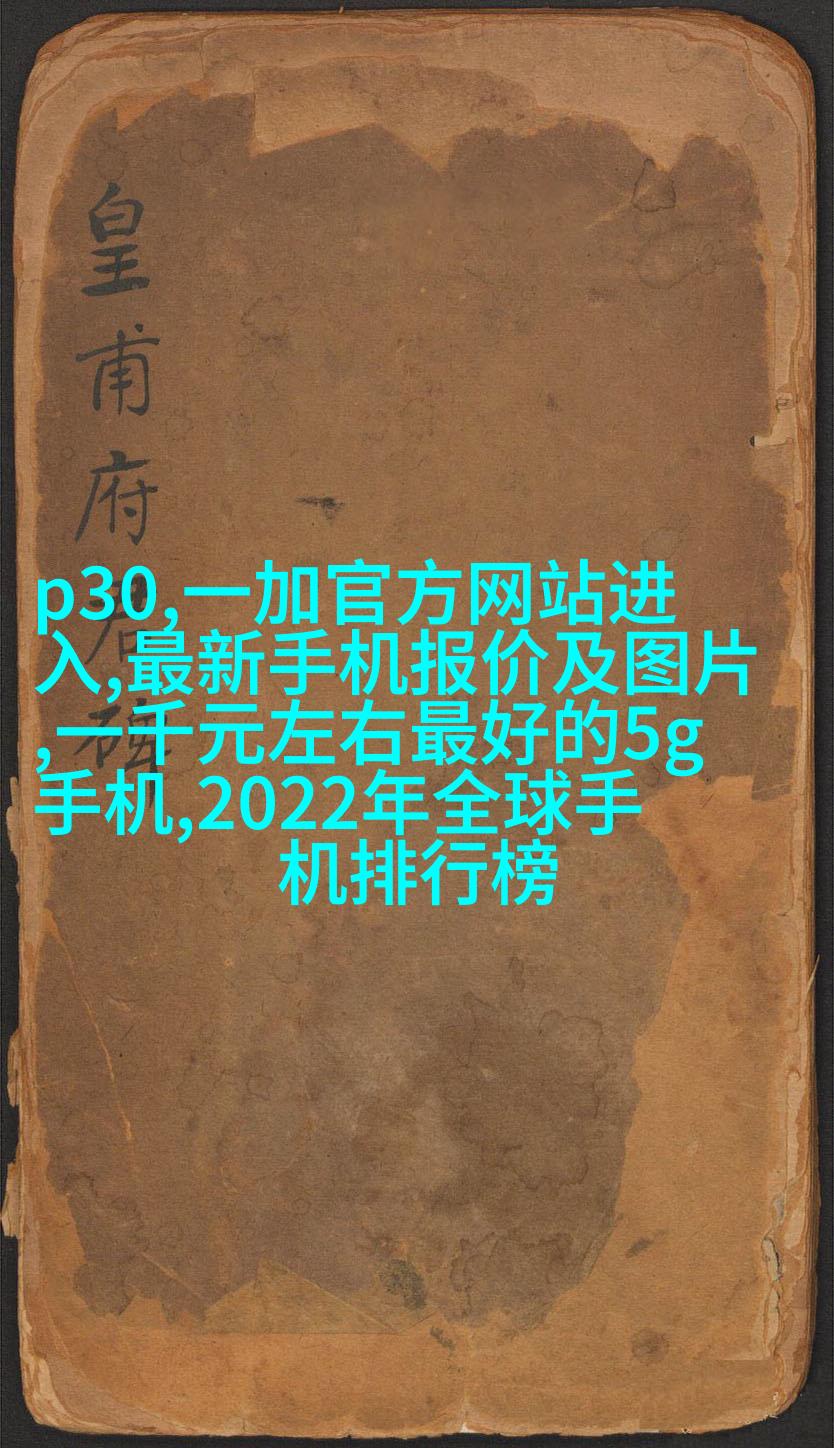 皇甫府君碑
p30,一加官方网站进
入,最新手机报价及图片
,一千元左右最好的5g
手机,2022年全球手
机排行榜